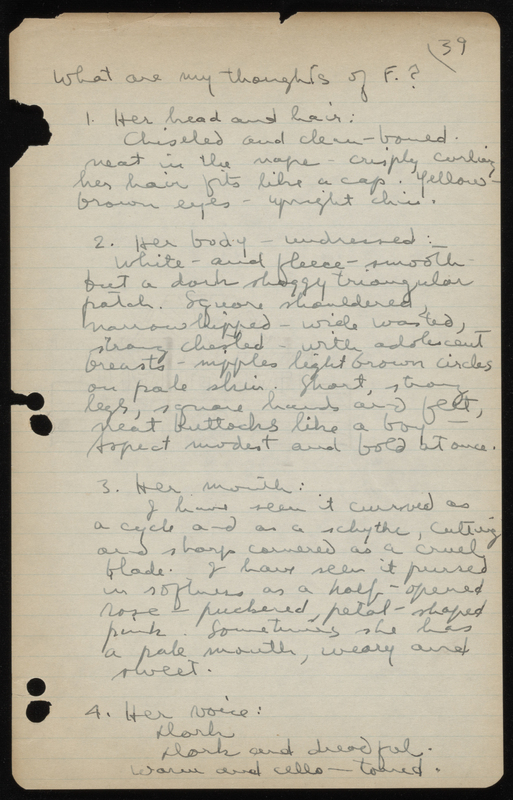 39
What are my thoughts of F.?
1. Her head and hair:
Chiseled and clean-boned.
neat in the nape - crisply curling
her hair fits like a cap. Yellow-
brown eyes - upright chin.
2. Her body - undressed:-
White - and fleece-smooth
but a dark shaggy triangular
patch. Square shouldered,
narrow hipped - wide wasted,
strong chested - with adolescent
breasts - nipples light brown circles
on pale skin. Short, strong
legs, square hands and feet,
neat buttocks like a boy -
Aspect modest and bold at once.
3. Her mouth:
I have seen it curved as
a cycle and as a schythe, cutting
and sharp cornered as a cruel
blade. I have seen it pursed
in softness as a half-opened
rose - puckered, petal-shaped
pink. Sometimes she has
a pale mouth, weary and
sweet.
4. Her voice:
Dark
Dark and dreadful.
Warm and cello-toned.